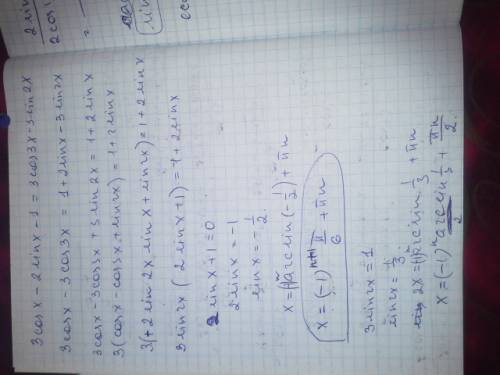 2 sin
2 cos
=
sin
3 cos x - 2 sin x - 1 = 3 cos 3x - 3 sin 2x
3 cos x - 3 cos 3x = 1 + 2 sin x - 3 sin 2x
3 cos x - 3 cos 3x + 3 sin 2x = 1 + 2 sin x
3 (cos x - cos 3x + sin 2x) = 1 + 2 sin x
3 (+ 2 sin 2x sin x + sin 2x) = 1 + 2 sin x
3 sin 2x (2 sin x + 1) = 1 + 2 sin x
2 sin x + 1 = 0
2 sin x = -1
sin x = -1/2
x = (-1)^n arc sin (-1/2) + πn
x = (-1)^{n+1} π/6 + πn
3 sin 2x = 1
sin 2x = 1/3
2x = (-1)^n arc sin 1/3 + πn
x = (-1)^n arc sin 1/3 / 2 + πn/2